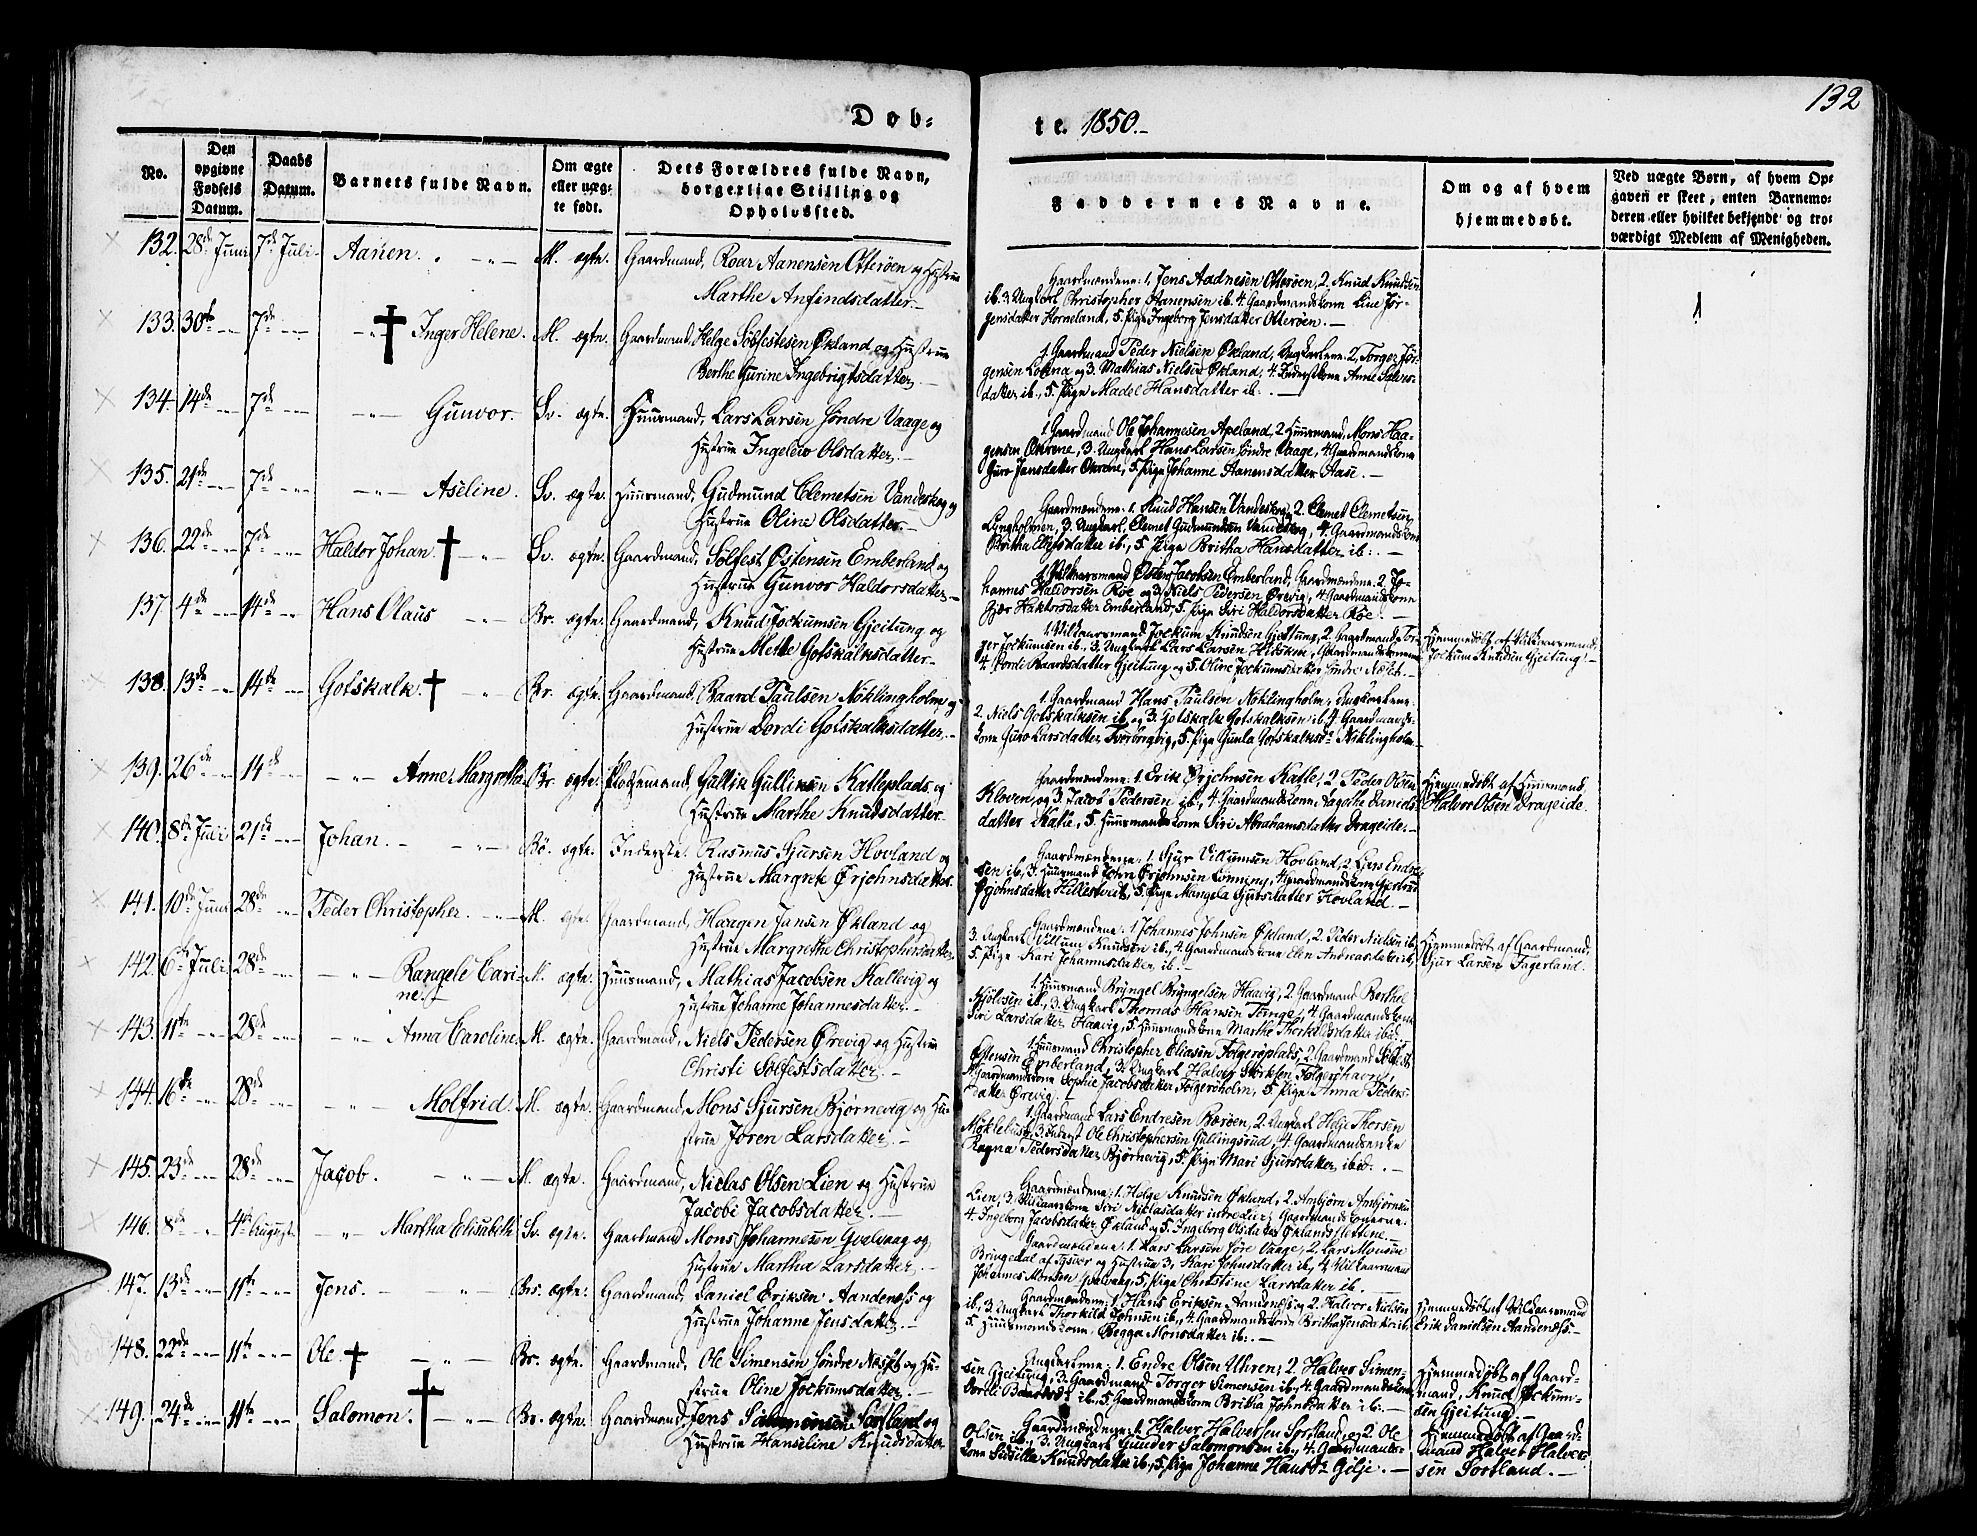 132
Døb-
te. 1850.-
No.
Den opgivne Fødsels Datum.
Daabs Datum.
Barnets fulde Navn.
Om ægte eller uæg-
te født.
Dets Forældres fulde Navn,
borgerlige Stilling og
Opholdssted.
Faddernes Navne.
Om og af hvem
hjemmedøbt.
Ved uægte Børn, af hvem Op-
gaven er skeet, enten Barnemo-
deren eller hvilket bekjendt og tro-
værdigt Medlem af Menigheden.
132. 28de Juni 7de Juli. Aanen. M. ægte. Gaardmand, Roar Aanensen Otterøen og Hustrue
Marthe Anfindsdatter.
Gaardmændene: 1. Jens Aadnesen Otterøen, 2. Knud Knudsen
ib. 3. Ungkarl Christopher Aanensen ib. 4. Gaardmandskone Line Jør-
gensdatter Horneland, 5. Pige Ingeborg Jensdatter Otterøen.
133. 30te 7de Inger Helene. M. ægte. Gaardmand, Helge Sølfestesen Økland og Hustrue
Berthe Gurine Ingebrigtsdatter.
1. Gaardmand Peder Nielsen Økland, Ungkarlene: 2. Torger Jør-
gensen og 3. Mathias Nielsen Økland, 4. Inderstkone Anne
datter ib., 5. Pige Madel Hansdatter ib.
134. 14de 7de Gunvor. Sv. ægte. Huusmand, Lars Larsen Søndre Vaage og
Hustrue Ingelew Olsdatter.
1. Gaardmand Ole Johannesen Apeland, 2. Huusmand, Mons Haa-
gensen 3. Ungkarl Hans Larsen Søndre Vaage, 4. Gaardmandskone
Guro Jansdatter 5. Pige Johanne Aanensdatter Aase.
135. 21de 7de Aseline. Sv. ægte. Huusmand, Gudmund Clemetsen Vandeskog og
Hustrue Oline Olsdatter.
Gaardmændene: 1. Knud Hansen Vandeskog, 2. Clemet Clemetsen
Lyngholmen, 3. Ungkarl Clemet Gudmundsen Vandeskog, 4. Gaardmandskone
Britha ib., 5. Pige Britha Hansdatter ib.
136. 22de 7de Haldor Johan. Sv. ægte. Gaardmand, Sølfest Østensen Emberland og
Hustrue Gunvor Haldorsdatter.
1. Vilkaarsmand Østen Jacobsen Emberland, Gaardmændene: 2. Jo-
hannes Haldorsen Røe og 3. Niels Pedersen Ørevig, 4. Gaardmandskone
Emberland, 5. Pige Siri Haldorsdatter Røe.
137. 4de 14de Hans Olaus Br. ægte. Gaardmand, Knud Jockumsen Gjeitung og
Hustrue Methe Gotskalksdatter.
1. Vilkaarsmand Jockum Knudsen Gjeitung, 2. Gaardmand Tor-
ger Jockumsen ib., 3. Ungkarl Lars Larsen Gaardmandskonerne
4. Dorde Baardsdatter Gjeitung og 5. Oline Jockumsdatter Søndre
Hjemmedøbt af Vilkaarsmand
Jockum Knudsen Gjeitung.
138. 13de 14de Gotskalk. Br. ægte. Gaardmand, Baard Paulsen Nøklingholm og
Hustrue Dordi Gotskalksdatter.
1. Gaardmand Hans Paulsen Nøklingholm, Ungkarlene:
2. Niels Gotskalksen ib. og 3. Gotskalk Gotskalksen ib. 4. Gaardmands-
kone Guro Larsdatter 5. Pige Gunla Gotskalksdr. Nøklingholm.
139. 26de 14de Anne Margretha. Br. ægte. Pladsemand, Gullik Gulliksen Katleplads og
Hustrue Marthe Knudsdatter.
Gaardmændene: 1. Erik Ørjohnsen Katle, 2. Peder Olsen
Kloven, og 3. Jacob Pedersen ib., 4. Gaardmandskone Aagathe Daniels-
datter Katle, 5. Huusmandskone Siri Abrahamsdatter Drageide.
Hjemmedøbt af Huusmand,
Halvor Olsen Drageide.
140. 8de Juli 21de Johan. Bø. ægte. Inderste, Rasmus Sjursen Hovland og
Hustrue Margrete Ørjohnsdatter.
Gaardmændene: 1. Sjur Villumsen Hovland, 2. Lars Endre-
sen ib., 3. Huusmand Ørjohnsen 4. Gaardmandskone
Ørjohnsdatter 5. Pige Mangela Sjursdatter Hovland.
141. 10de Juni 28de Peder Christopher. M. ægte. Gaardmand, Haagen Jansen Økland og
Hustrue Margrethe Christophersdatter.
Gaardmændene: 1. Johannes Johnsen Økland, 2. Peder Nielsen ib,
3. Ungkarl Villum Knudsen ib., 4. Gaardmandskone Elen Andreasdatter ib,
5. Pige Kari Johannesdatter, ib.
Hjemmedøbt af Gaardmand,
Sjur Larsen Fagerland.
142. 6te Juli 28de Rangele Cari-
ne. M. ægte. Huusmand, Mathias Jacobsen Kallevig og
Hustrue Johanne Johannesdatter.
1. Huusmand Bryngel Bryngelsen Haavig, 2. Gaardmand Berthel
ib., 3. Ungkarl Thomas Hansen 4. Gaardmandskone
Siri Larsdatter Haavig, 5. Huusmandskone Marthe Thorkelsdatter ibid.
143. 11te 28de Anna Caroline. M. ægte. Gaardmand, Niels Pedersen Ørevig og Hustrue
Christi Sølfestsdatter.
1. Huusmand Christopher Eliasen Folgerøplads, 2. Gaardmand Sølfest
Østensen Emberland, 3. Ungkarl Halvor Størksen Folgerøhavn,
4. Gaardmandskone Sophie Jacobsdatter Folgerøholm, 5. Pige Anna Peders-
datter Ørevig.
144. 16de 28de Molfrid. M. ægte. Gaardmand, Mons Sjursen Bjørnevig og Hu-
strue Joren Larsdatter.
1. Gaardmand Lars Endresen Børøen, 2. Ungkarl Helje Thorsen
Møklebust, 3. Inderst Ole Christophersen Gullingsrud, 4. Gaardmandsenke
Ragna Pedersdatter Bjørnevig, 5. Pige Mari Sjursdatter, ibid.
145. 23de 28de Jacob. M. ægte. Gaardmand, Niclas Olsen Lien og Hustrue
Jacobe Jacobsdatter.
Gaardmændene: 1. Helge Knudsen Økland, 2. Anbjørn Anbjørnsen
Lien, 3. Vilkaarskone Siri Niclasdatter Gaardmandskonerne:
4. Ingeborg Jacobsdatter Økland og 5. Ingeborg Olsdatter Øklandslættene.
146. 8de 4de August. Martha Elisabeth. Sv. ægte. Gaardmand Mons Johannesen Gvalvaag og
Hustrue Martha Larsdatter.
Gaardmændene: 1. Lars Larsen Søre Vaage, 2. Lars Monsen
Bringedal af Tysvær og Hustrue 3. Kari Johnsdatter ib, 4. Vilkaarsmand
Johannes Monsen Gvalvaag, 5. Pige Christine Larsdatter ib.
147. 13de 11te Jens. Br. ægte. Gaardmand, Daniel Eriksen Aandenæss og
Hustrue Johanne Jensdatter.
Gaardmændene: 1. Hans Eriksen Aandenæss og 2. Halvor Nielsen
ib, 3. Ungkarl Thorkild Johnsen ib., 4. Gaardmandskone Britha Jensdatter ib.
5. Huusmandskone, Begga Monsdatter ib.
Hjemmedøbt af Vilkaarsmand
Erik Danielsen Aandenæss.
148. 22de 11te Ole. Br. ægte. Gaardmand, Ole Simensen Søndre Næss og Hu-
strue Oline Jockumsdatter.
Ungkarlene: 1. Endre Olsen Uhren, 2. Halvor Simen-
sen Gjeitung, 3. Gaardmand Torger Simensen ib, 4. Gaardmandskone
Dordi ib. 5. Gaardmandskone Britha Johnsdatter ib.
Hjemmedøbt af Gaard-
mand, Knud Jockum-
sen Gjeitung.
149. 24de 11te Salomon. Br. ægte. Gaardmand Jens Salomonsen Sortland og
Hustrue Hanseline Knudsdatter
Gaardmændene: 1. Halvor Halvorsen Sortland, og 2. Ole
Olsen ib., 3. Ungkarl Gunder Salomonsen ib., 4. Gaardmands-
kone Sidsille Knudsdatter ib., 5. Pige Johanne Hansdr. Gilje.
Hjemmedøbt af Gaard-
mand Halvor Halvor-
sen Sortland.